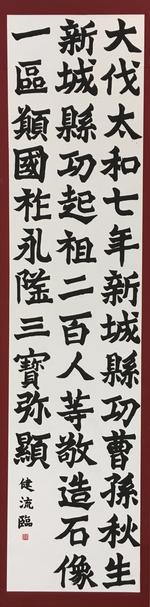 大伐太和七年新城縣功曹孫秋生
新城縣功起祖二百人等敬造石像
一區願國祚永隆三寶弥顯
健流臨